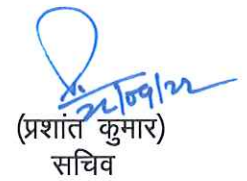 22/09/22
(प्रशांत कुमार)
सचिव